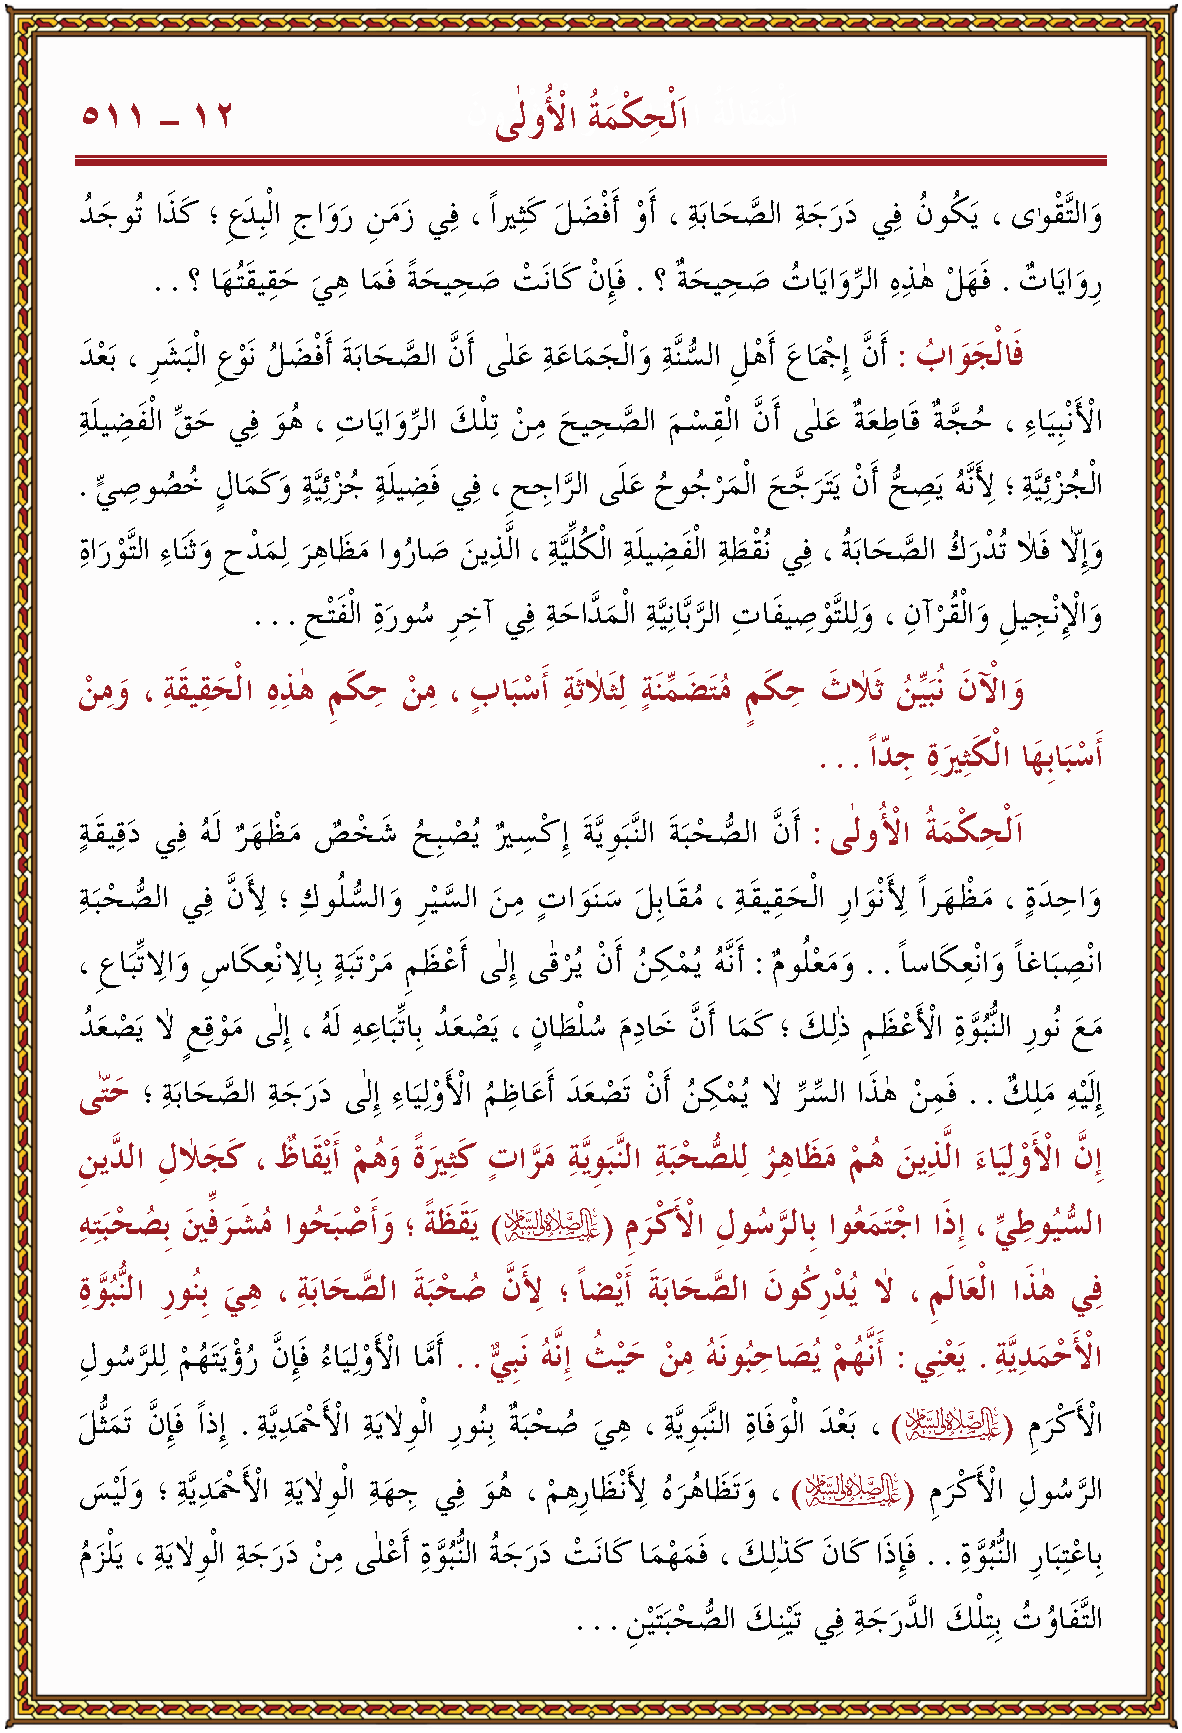 اَلْحِكْمَةُ الْأُولٰى ١٢ – ٥١١
وَالتَّقْوٰى ، يَكُونُ فِي دَرَجَةِ الصَّحَابَةِ ، أَوْ أَفْضَلَ كَثِيراً ، فِي زَمَنِ رَوَاجِ الْبِدَعِ ؛ كَذَا تُوجَدُ
رِوَايَاتٌ . فَهَلْ هٰذِهِ الرِّوَايَاتُ صَحِيحَةٌ ؟ . فَإِنْ كَانَتْ صَحِيحَةً فَمَا هِيَ حَقِيقَتُهَا ؟ . .
فَالْجَوَابُ : أَنَّ إِجْمَاعَ أَهْلِ السُّنَّةِ وَالْجَمَاعَةِ عَلٰى أَنَّ الصَّحَابَةَ أَفْضَلُ نَوْعِ الْبَشَرِ ، بَعْدَ
الْأَنْبِيَاءِ ، حُجَّةٌ قَاطِعَةٌ عَلٰى أَنَّ الْقِسْمَ الصَّحِيحَ مِنْ تِلْكَ الرِّوَايَاتِ ، هُوَ فِي حَقِّ الْفَضِيلَةِ
الْجُزْئِيَّةِ ؛ لِأَنَّهُ يَصِحُّ أَنْ يَتَرَجَّحَ الْمَرْجُوحُ عَلَى الرَّاجِحِ ، فِي فَضِيلَةٍ جُزْئِيَّةٍ وَكَمَالٍ خُصُوصِيٍّ .
وَإِلَّا فَلَا تُدْرَكُ الصَّحَابَةُ ، فِي نُقْطَةِ الْفَضِيلَةِ الْكُلِّيَّةِ ، الَّذِينَ صَارُوا مَظَاهِرَ لِمَدْحِ وَثَنَاءِ التَّوْرَاةِ
وَالْإِنْجِيلِ وَالْقُرْآنِ ، وَلِلتَّوْصِيفَاتِ الرَّبَّانِيَّةِ الْمَدَّاحَةِ فِي آخِرِ سُورَةِ الْفَتْحِ . . .
وَالْآنَ نُبَيِّنُ ثَلَاثَ حِكَمٍ مُتَضَمِّنَةٍ لِثَلَاثَةِ أَسْبَابٍ ، مِنْ حِكَمِ هٰذِهِ الْحَقِيقَةِ ، وَمِنْ
أَسْبَابِهَا الْكَثِيرَةِ جِدّاً . . .
اَلْحِكْمَةُ الْأُولٰى : أَنَّ الصُّحْبَةَ النَّبَوِيَّةَ إِكْسِيرٌ يُصْبِحُ شَخْصٌ مَظْهَرٌ لَهُ فِي دَقِيقَةٍ
وَاحِدَةٍ ، مَظْهَراً لِأَنْوَارِ الْحَقِيقَةِ ، مُقَابِلَ سَنَوَاتٍ مِنَ السَّيْرِ وَالسُّلُوكِ ؛ لِأَنَّ فِي الصُّحْبَةِ
انْصِبَاغاً وَانْعِكَاساً . . وَمَعْلُومٌ : أَنَّهُ يُمْكِنُ أَنْ يُرْقٰى إِلٰى أَعْظَمِ مَرْتَبَةٍ بِالِانْعِكَاسِ وَالِاتِّبَاعِ ،
مَعَ نُورِ النُّبُوَّةِ الْأَعْظَمِ ذٰلِكَ ؛ كَمَا أَنَّ خَادِمَ سُلْطَانٍ ، يَصْعَدُ بِاتِّبَاعِهِ لَهُ ، إِلٰى مَوْقِعٍ لَا يَصْعَدُ
إِلَيْهِ مَلِكٌ . . فَمِنْ هٰذَا السِّرِّ لَا يُمْكِنُ أَنْ تَصْعَدَ أَعَاظِمُ الْأَوْلِيَاءِ إِلٰى دَرَجَةِ الصَّحَابَةِ ؛ حَتّٰى
إِنَّ الْأَوْلِيَاءَ الَّذِينَ هُمْ مَظَاهِرُ لِلصُّحْبَةِ النَّبَوِيَّةِ مَرَّاتٍ كَثِيرَةً وَهُمْ أَيْقَاظٌ ، كَجَلَالِ الدِّينِ
السُّيُوطِيِّ ، إِذَا اجْتَمَعُوا بِالرَّسُولِ الْأَكْرَمِ (عَلَيْهِ الصَّلَاةُ وَالسَّلَامُ) يَقَظَةً ؛ وَأَصْبَحُوا مُشَرَّفِينَ بِصُحْبَتِهِ
فِي هٰذَا الْعَالَمِ ، لَا يُدْرِكُونَ الصَّحَابَةَ أَيْضاً ؛ لِأَنَّ صُحْبَةَ الصَّحَابَةِ ، هِيَ بِنُورِ النُّبُوَّةِ
الْأَحْمَدِيَّةِ . يَعْنِي : أَنَّهُمْ يُصَاحِبُونَهُ مِنْ حَيْثُ إِنَّهُ نَبِيٌّ . . أَمَّا الْأَوْلِيَاءُ فَإِنَّ رُؤْيَتَهُمْ لِلرَّسُولِ
الْأَكْرَمِ (عَلَيْهِ الصَّلَاةُ وَالسَّلَامُ) ، بَعْدَ الْوَفَاةِ النَّبَوِيَّةِ ، هِيَ صُحْبَةٌ بِنُورِ الْوِلَايَةِ الْأَحْمَدِيَّةِ . إِذاً فَإِنَّ تَمَثُّلَ
الرَّسُولِ الْأَكْرَمِ (عَلَيْهِ الصَّلَاةُ وَالسَّلَامُ) ، وَتَظَاهُرَهُ لِأَنْظَارِهِمْ ، هُوَ فِي جِهَةِ الْوِلَايَةِ الْأَحْمَدِيَّةِ ؛ وَلَيْسَ
بِاعْتِبَارِ النُّبُوَّةِ . . فَإِذَا كَانَ كَذٰلِكَ ، فَمَهْمَا كَانَتْ دَرَجَةُ النُّبُوَّةِ أَعْلٰى مِنْ دَرَجَةِ الْوِلَايَةِ ، يَلْزَمُ
التَّفَاوُتُ بِتِلْكَ الدَّرَجَةِ فِي تَيْنِكَ الصُّحْبَتَيْنِ . . .